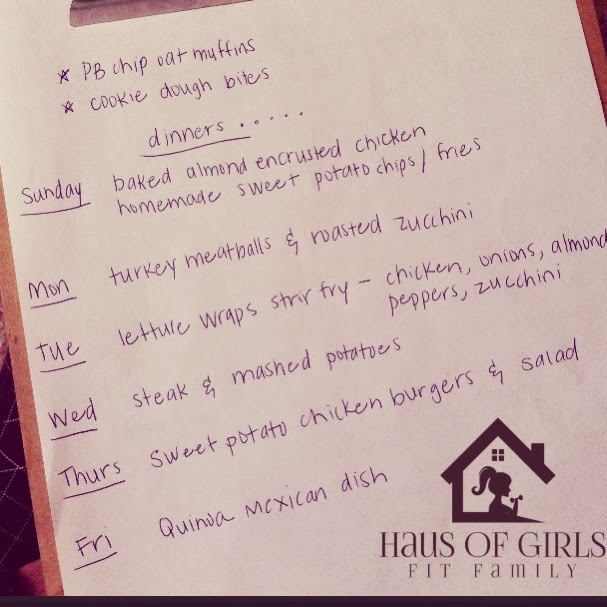 * PB chip oat muffins
* cookie dough bites
dinners.....
Sunday baked almond encrusted chicken
homemade sweet potato chips/fries
Mon turkey meatballs & roasted zucchini
Tue lettuce wraps stir fry - chicken, onions, almond
peppers, zucchini
Wed steak & mashed potatoes
Thurs sweet potato chicken burgers & salad
Fri Quinoa Mexican dish
HAUS OF GIRLS
FIT FAMILY